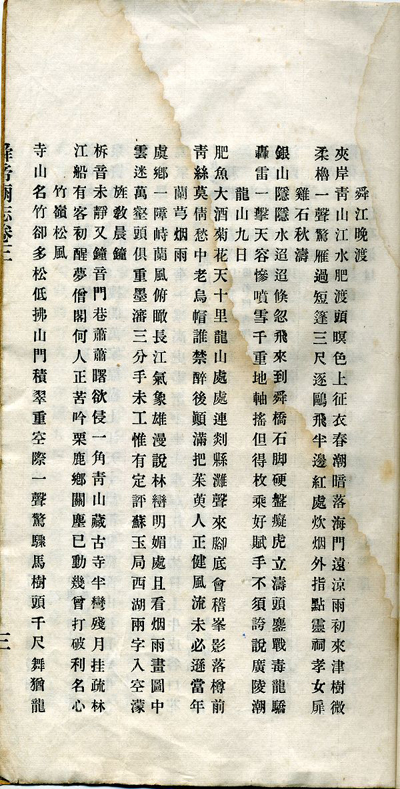 舜江晚渡
夾岸靑山江水肥渡頭暝色上征衣春潮暗落海門遠涼雨初來津樹微
柔櫓一聲驚雁過短篷三尺逐鷗飛半邊紅處炊烟外指點靈祠孝女扉
雞石秋濤
銀山隱隱水迢迢倏忽飛來到舜橋石脚硬盤癡虎立濤頭鏖戰毒龍驕
轟雷一擊天容慘噴雪千重地軸搖但得枚乘好賦手不須誇說廣陵潮
龍山九日
肥魚大酒菊花天十里龍山處處連剡縣灘聲來腳底會稽峯影落樽前
靑絲莫倩愁中老烏帽誰禁醉後顚滿把茱萸人正健風流未必遜當年
蘭芎烟雨
虞鄉一障峙蘭風俯瞰長江氣象雄漫說林巒明媚處且看烟雨畫圖中
雲迷萬壑頭俱重墨瀋三分手未工惟有定評蘇玉局西湖兩字入空濛
旌敎晨鐘
柝音未靜又鐘音門巷蕭蕭曙欲侵一角靑山藏古寺半彎殘月挂疏林
江船有客初醒夢僧閣何人正苦吟栗鹿鄉關塵已動幾曾打破利名心
竹嶺松風
寺山名竹卻多松低拂山門積翠重空際一聲驚驟馬樹頭千尺舞猶龍
三